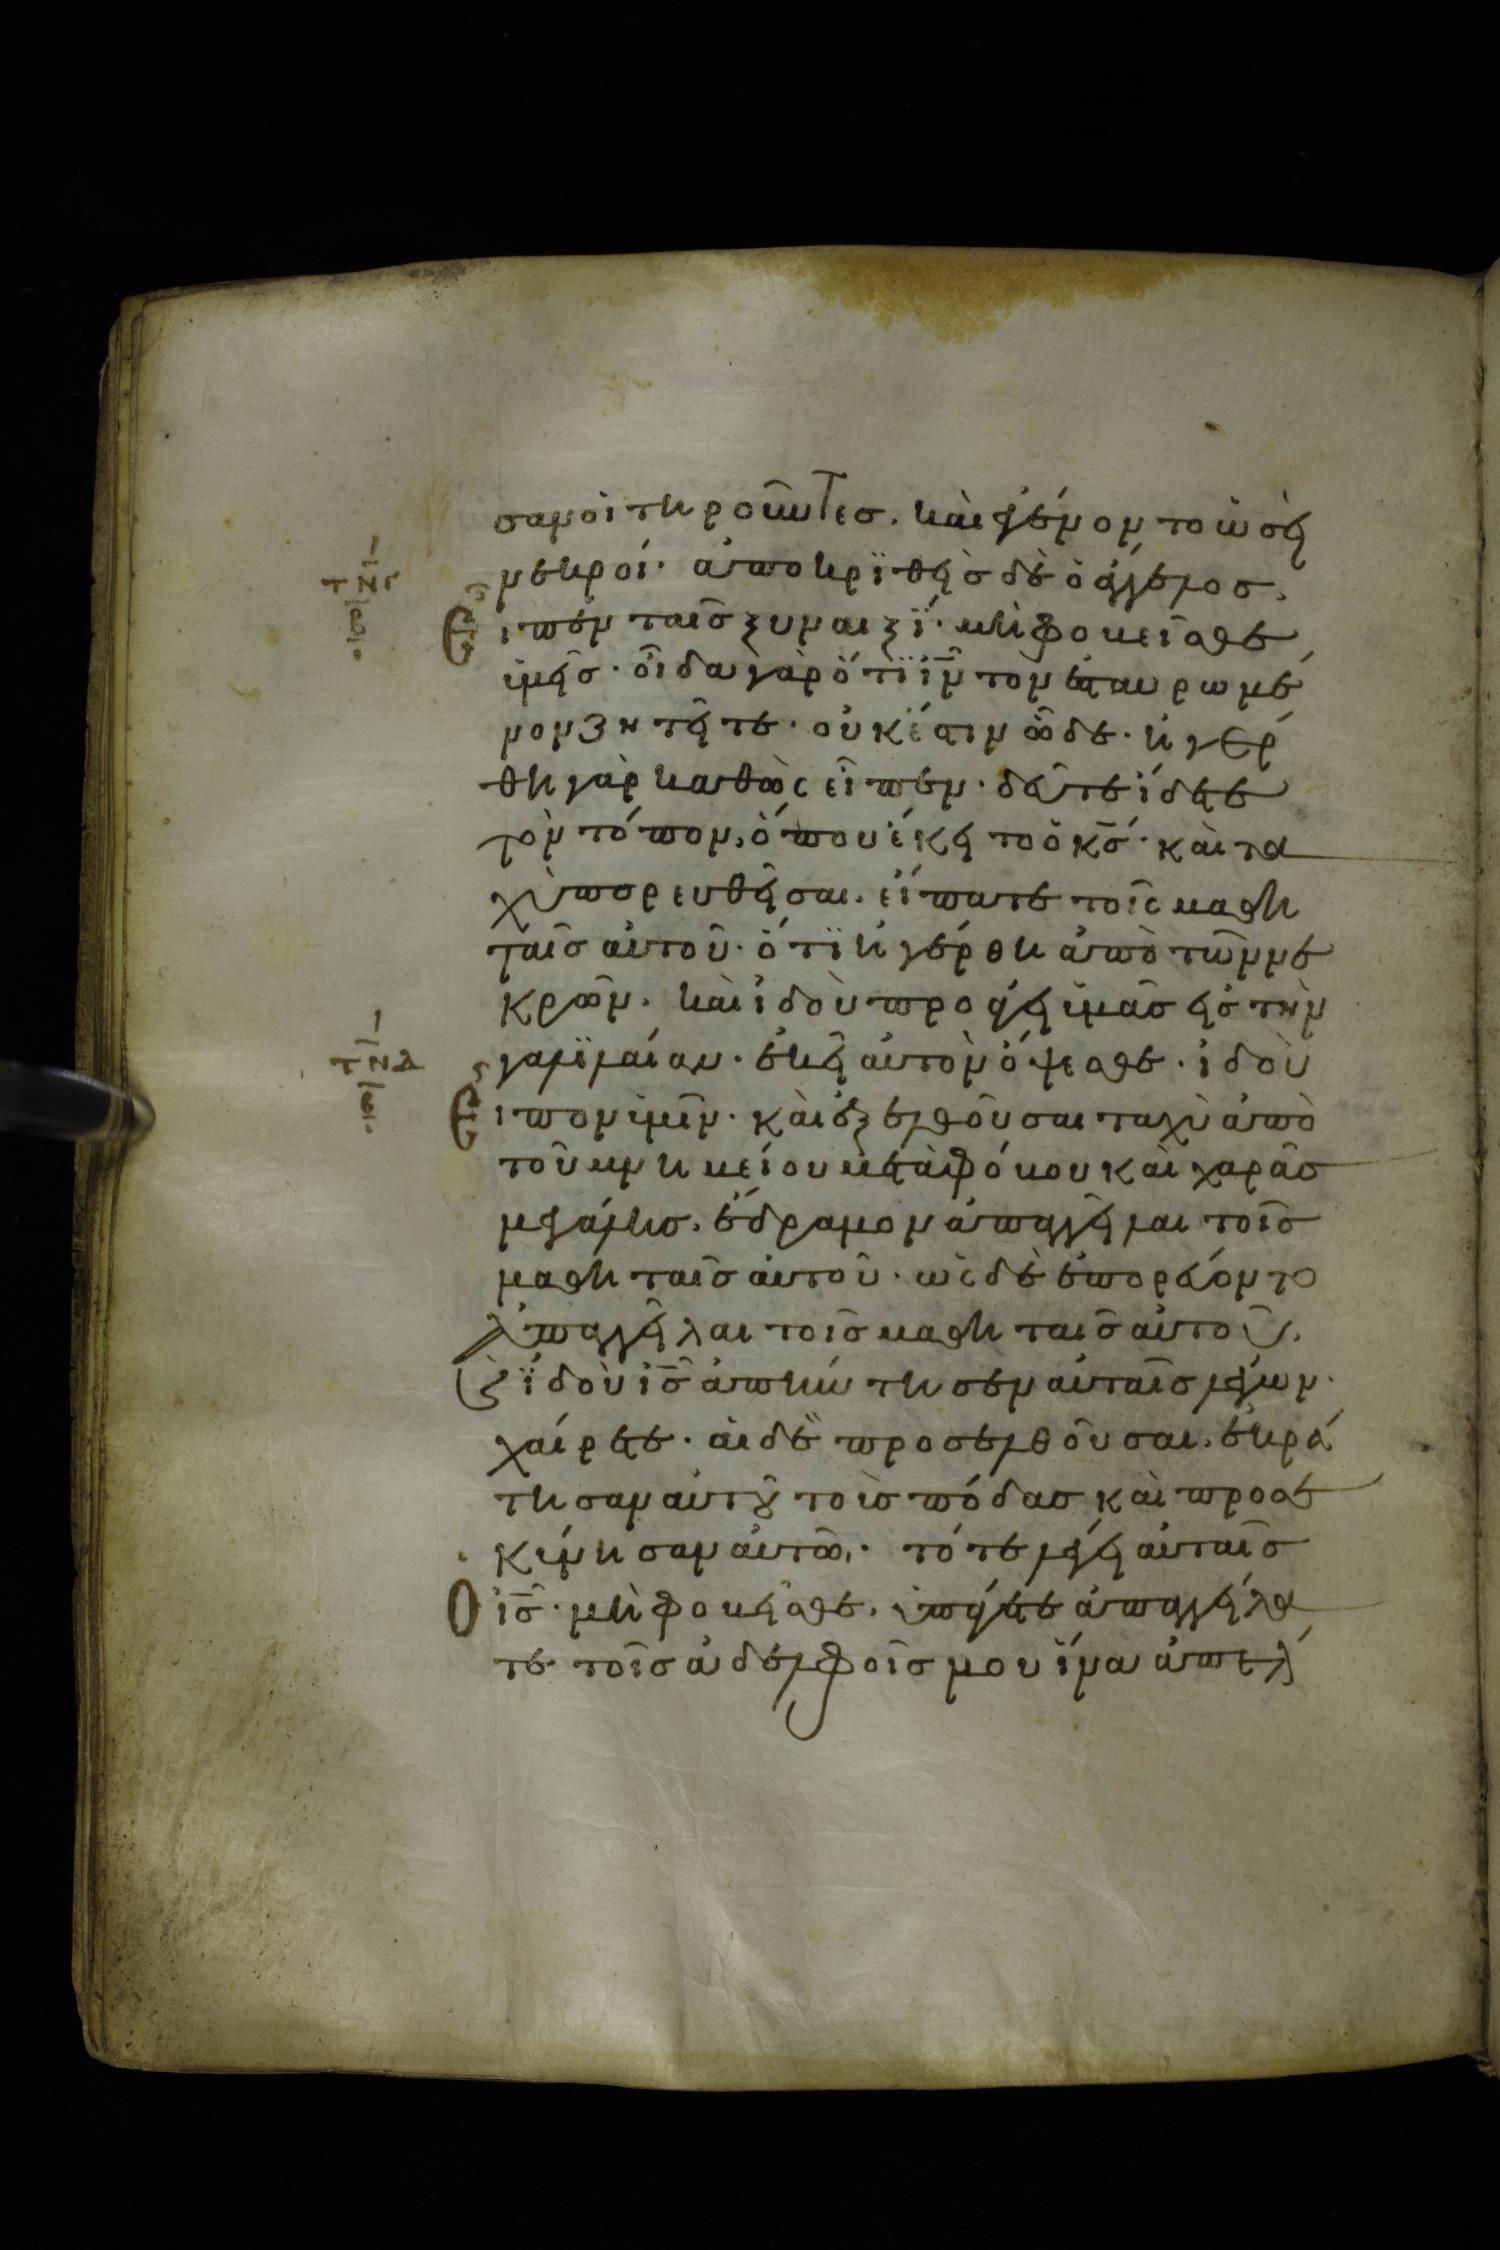 σαν οἱ τηροῦντεσ. καὶ ἐγένοντο ὡσεὶ
νεκροί. ἀποκριθεὶσ δὲ ὁ ἄγγελοσ.
Εἶπεν ταῖσ γυναιξί. μὴ φοβεῖσθε
ὑμεῖσ. οἶδα γὰρ ὅτϊ ιν τὸν ἐσταυρωμέ
νον ζητεῖτε. οὐκ ἔστιν ὧδε. ἠγέρ
θη γὰρ καθὼς εἶπεν. δεῦτε ἴδετε
τὸν τόπον, ὅπου ἔκειτο ὁ κσ. καὶ τα
χὺ πορευθεῖσαι. εἴπατε τοῖς μαθη
ταῖσ αὐτοῦ. ὅτϊ ἠγέρθη ἀπὸ τῶν νε
κρῶν. καὶ ἰδοὺ προάγει ὑμᾶσ εἰσ τὴν
γαλϊλαίαν. ἐκεῖ αὐτὸν ὄψεσθε. ἰδοὺ
Εἶπον ὑμῖν. καὶ ἐξελθοῦσαι ταχὺ ἀπὸ
τοῦ μνημείου μετὰ φόβου καὶ χαρᾶσ
μεγάλησ. ἔδραμον ἀπαγγεῖλαι τοῖσ
μαθηταῖσ αὐτοῦ. ὡς δὲ ἐπορεύοντο
ἀπαγγεῖλαι τοῖσ μαθηταῖσ αὐτοῦ.
Καὶ ἰδοὺ ισ ἀπήντησεν αὐταῖσ λέγων.
χαίρετε. αἱ δὲ προσελθοῦσαι. ἐκρά
τησαν αὐτοῦ τοὺσ πόδασ καὶ προσε
κύνησαν αὐτῶ. τότε λέγει αὐταῖσ
Ὁ ισ. μὴ φοβεῖσθε. ὑπάγετε ἀπαγγείλα
τε τοῖσ ἀδελφοῖσ μου ἵνα ἀπέλ